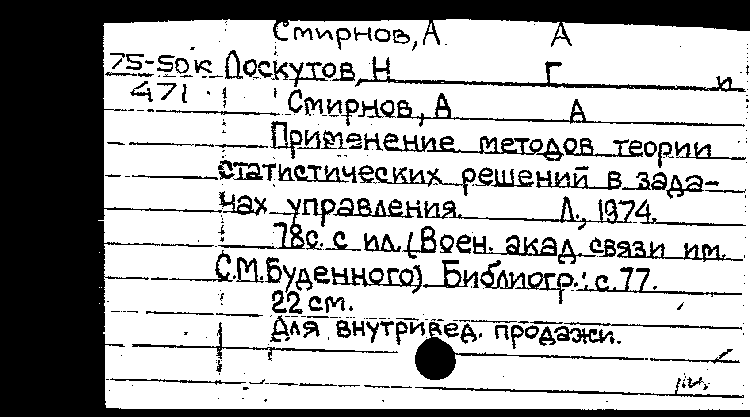 Смирнов, А А
75-50к Лоскутов, Н Г и
471 Смирнов, А А
Применение методов теории
статистических решений в зада-
чах управления. Л., 1974.
78с. с ил. (Воен. акад. связи им.
С.М. Буденного) Библиогр.: с. 77.
22 см.
Для внутривед. продажи.